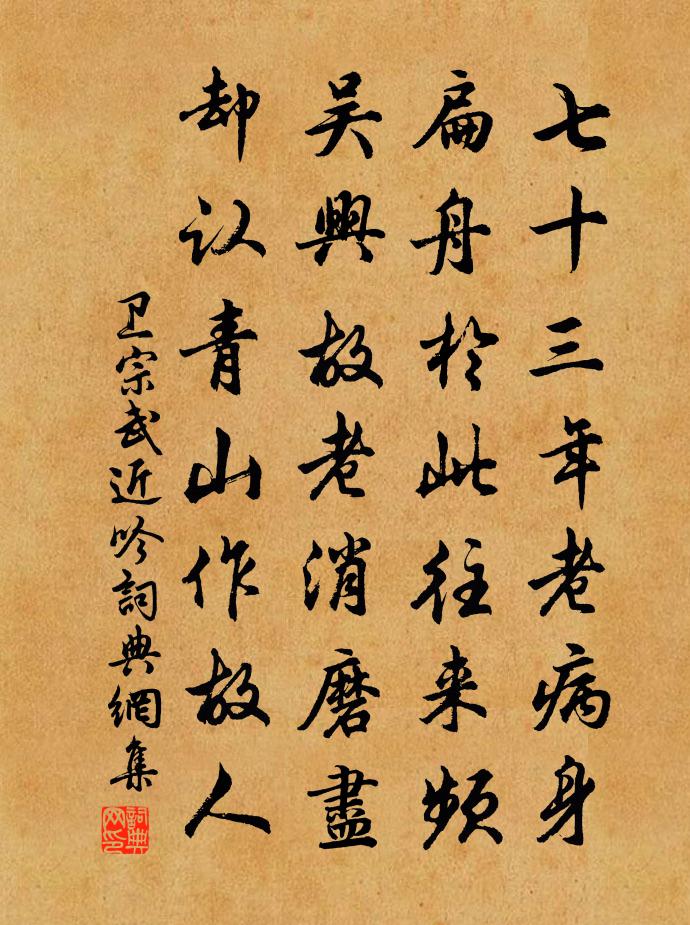 七十三年老病身
扁舟於此往来頻
吴興故老消磨盡
却认青山作故人
卫宗武近吟詞典網集
詞典网印